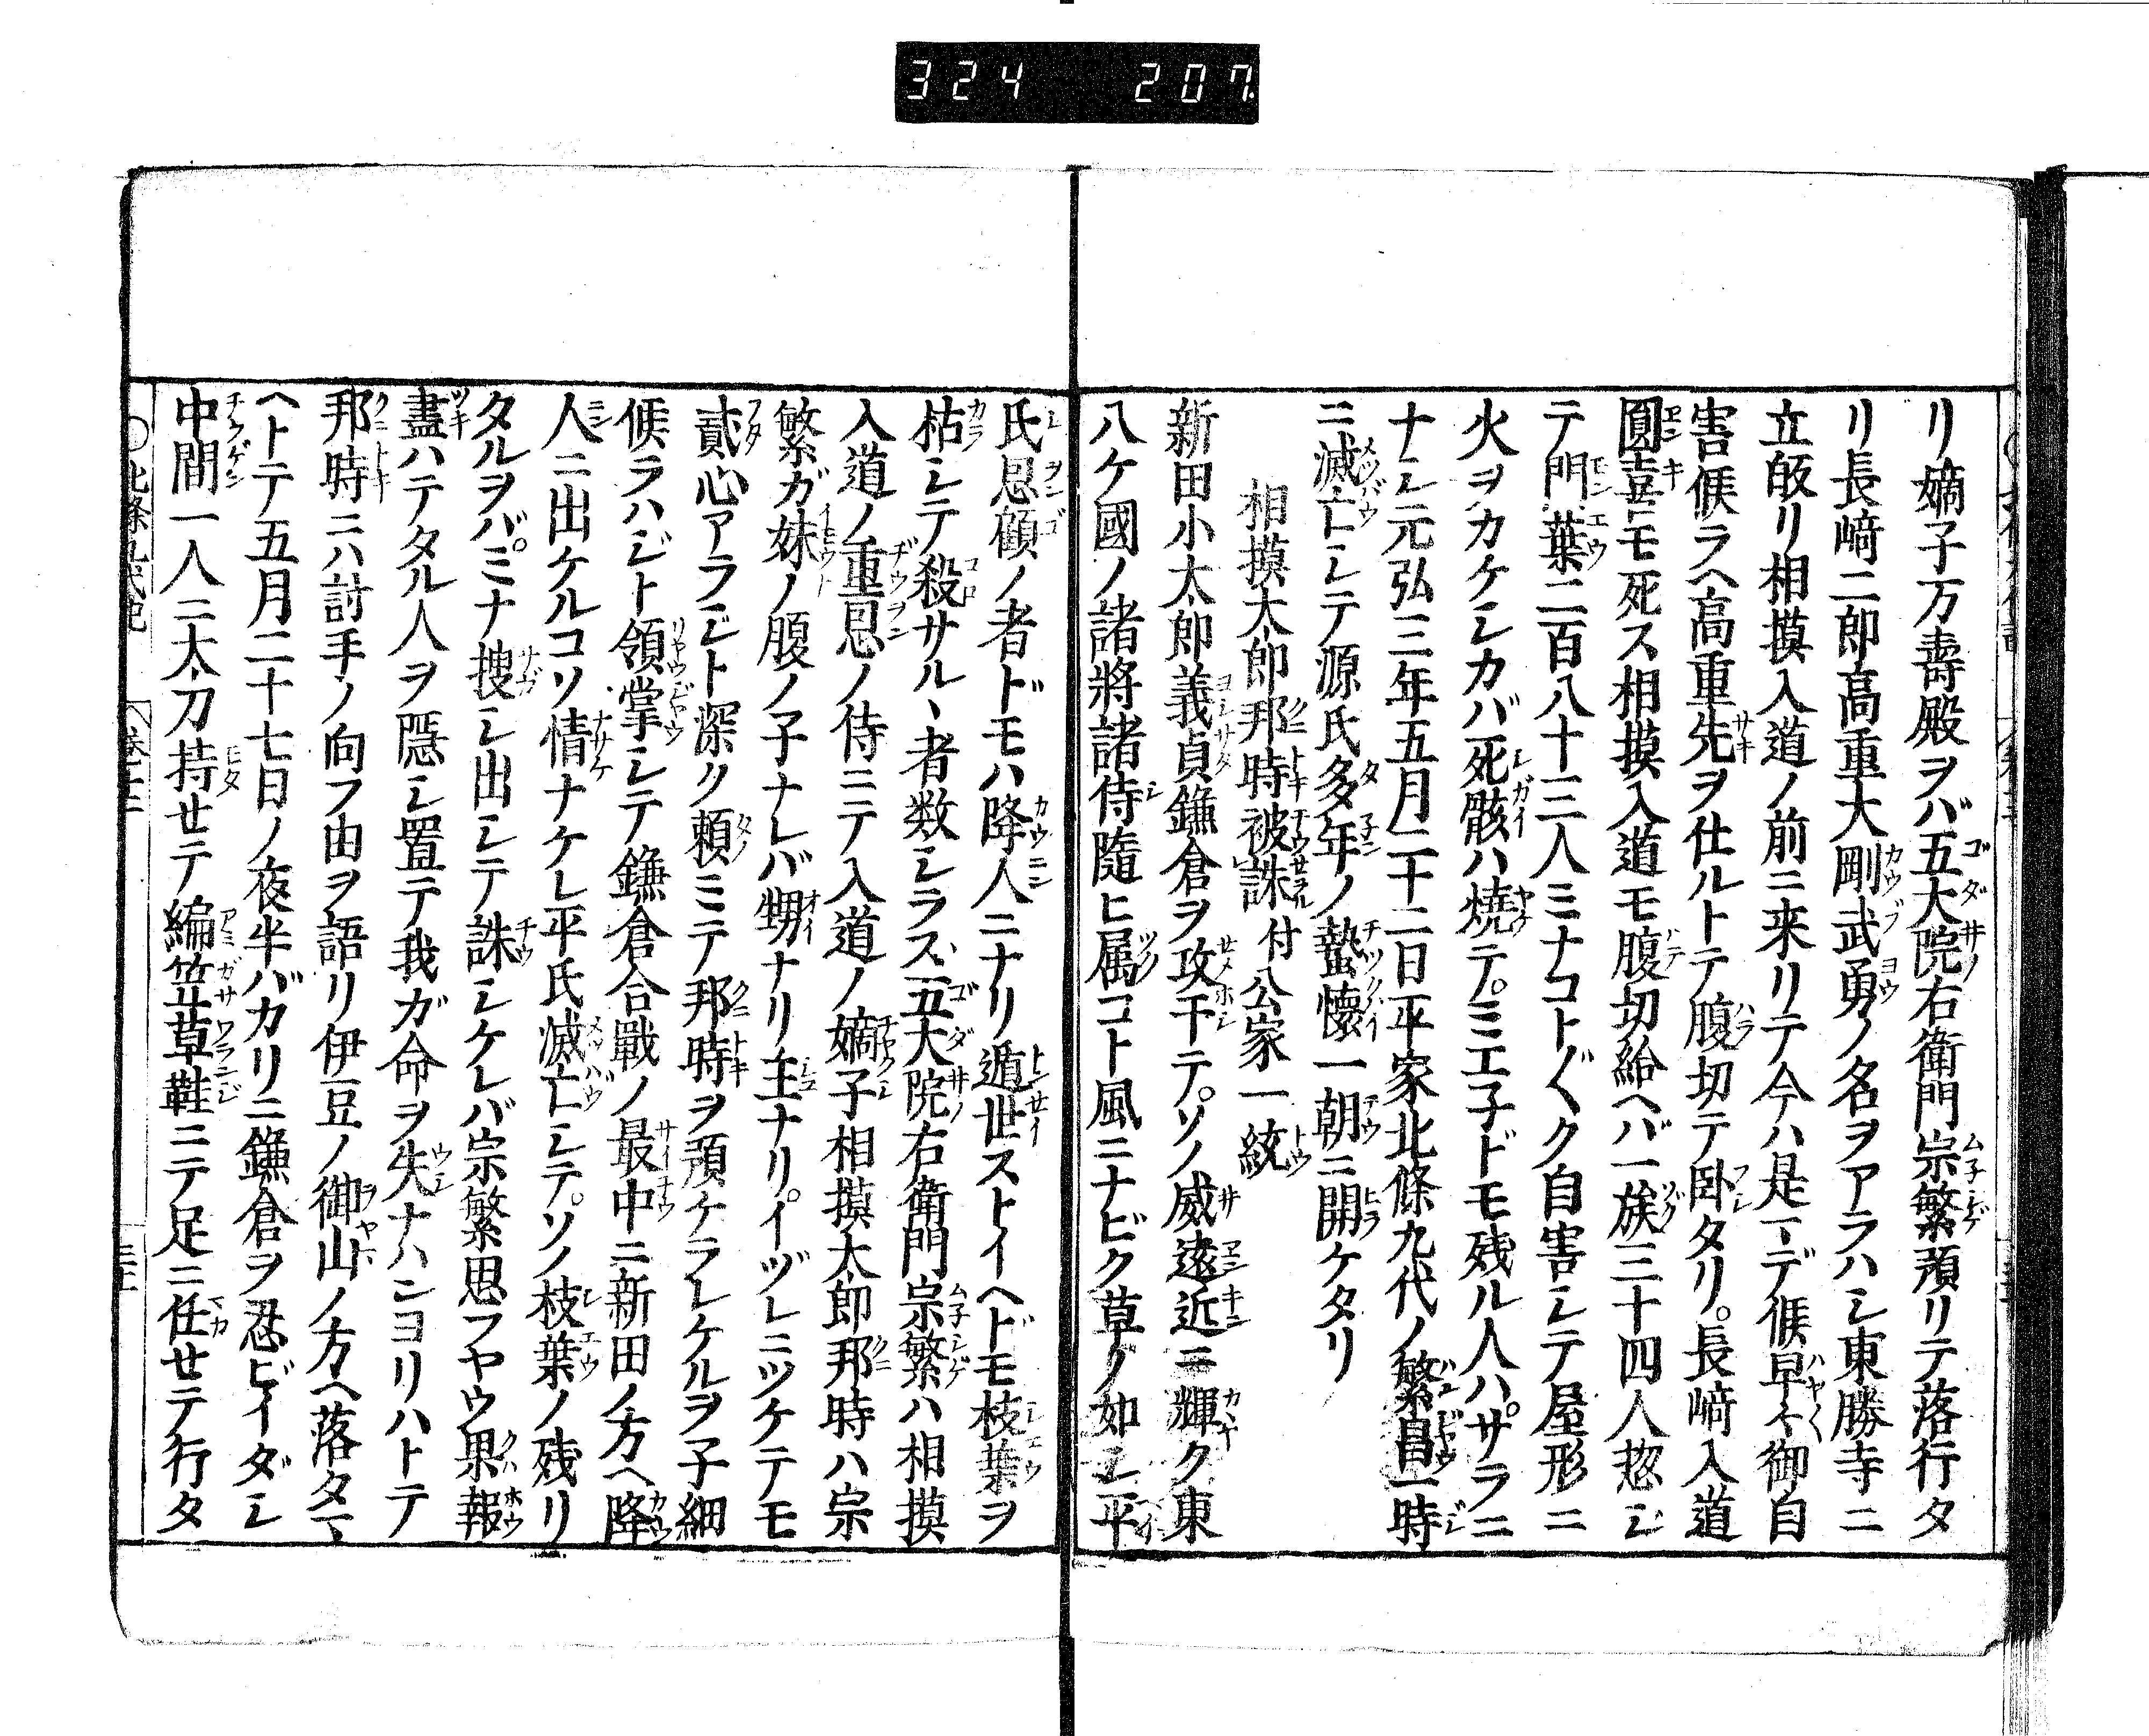 324 207
リ嫡子万壽殿ヲバ五大院右衛門宗繁預リテ落行タ
リ長﨑二郎高重大剛武勇ノ名ヲアラハシ東勝寺ニ
立皈リ相摸入道ノ前ニ来リテ今ハ是マデ候早々御自
害候ラヘ高重先ヲ仕ルトテ腹切テ卧タリ。長﨑入道
圓喜モ死ス相摸入道モ腹切給ヘバ一族三十四人惣ジ
テ門葉二百八十三人ミナコト〴〵ク自害シテ屋形ニ
火ヲカケシカバ死骸ハ燒テ。ミエ子ドモ残ル人ハ。サラニ
ナシ元弘三年五月二十二日平家北條九代ノ繁昌一時
ニ滅亡シテ源氏多年ノ蟄懷一朝ニ開ケタリ
相摸太郎邦時被誅付公家一統
新田小太郎義貞鎌倉ヲ攻干テ。ソノ威遠近ニ輝ク東
八ケ國ノ諸將諸侍隨ヒ属コト風ニナビク草ノ如シ平
氏恩顧ノ者ドモハ降人ニナリ遁世ストイヘドモ枝葉ヲ
枯シテ殺サルヽ者数シラズ五大院右衛門宗繁ハ相摸
入道ノ重恩ノ侍ニテ入道ノ嫡子相摸太郎邦時ハ宗
繁ガ妹ノ腹ノ子ナレバ甥ナリ主ナリ。イヅレニツケテモ
貳心アラジト深ク頼ミテ邦時ヲ預ケラレケルヲ子細
候ラハジト領掌シテ鎌倉合戰ノ最中ニ新田ノ方ヘ降
人ニ出ケルコソ情ナケレ平氏滅亡シテ。ソノ枝葉ノ残リ
タルヲバ。ミナ搜シ出シテ誅シケレバ宗繁思フヤウ果報
盡ハテタル人ヲ隱シ置テ我ガ命ヲ失ナハンヨリハトテ
邦時ニハ討手ノ向フ由ヲ語リ伊豆ノ御山ノ方ヘ落タマ
ヘトテ五月二十七日ノ夜半バカリニ鎌倉ヲ忍ビイダシ
中間一人ニ太刀持せテ編笠草鞋ニテ足ニ任せテ行タ
〇北條九代記